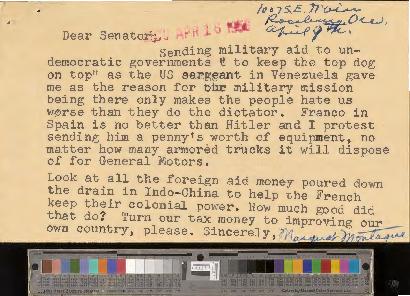 1007 S.E. Main
Roseburg, Ore.
April 9th.
APR 16
Dear Senator:
Sending military aid to un-
democratic governments " to keep the top dog
on top" as the US sergeant in Venezuela gave
me as the reason for our military mission
being there only makes the people hate us
worse than they do the dictator. Franco in
Spain is no better than Hitler and I protest
sending him a penny's worth of equipment, no
matter how many armored trucks it will dispose
of for General Motors.
Look at all the foreign aid money poured down
the drain in Indo-China to help the French
keep their colonial power. How much good did
that do? Turn our tax money to improving our
own country, please. Sincerely, Margaret Montague